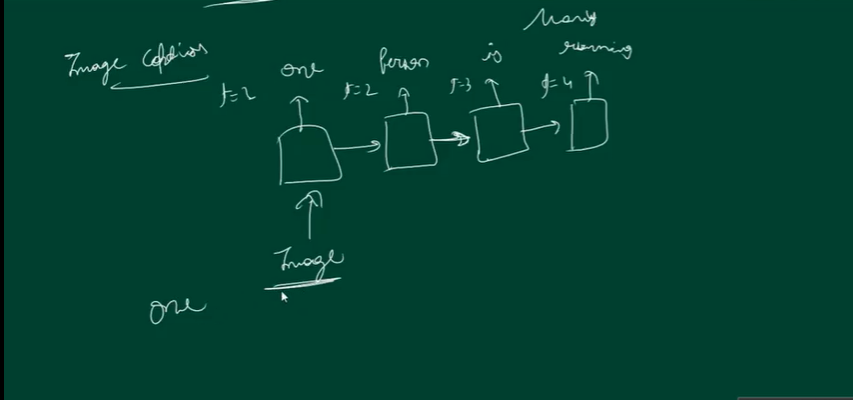 Image Caption
one person is running
t=1 t=2 t=3 t=4
Image
one